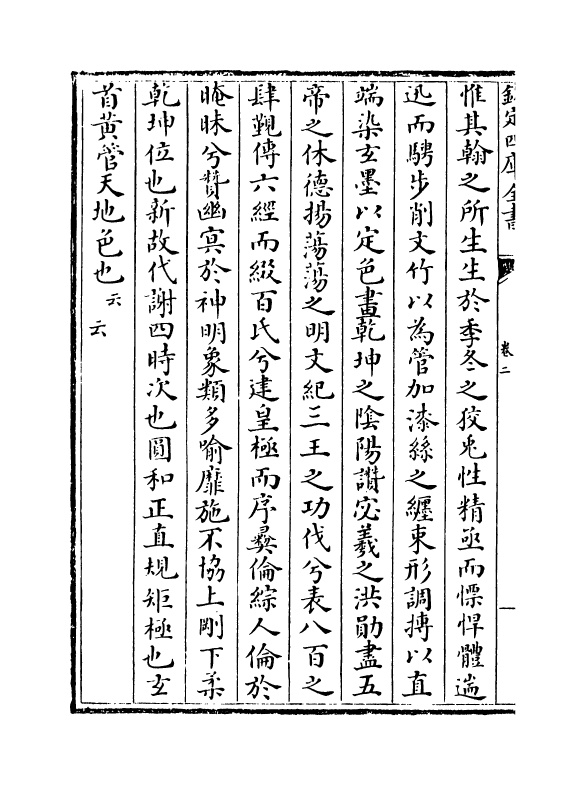 欽定四庫全書
卷二
惟其翰之所生生於季冬之狡兎性精亟而慓悍體遄
迅而騁步削文竹以為管加漆絲之纏束形調摶以直
端染玄墨以定色畫乾坤之隂陽讃宓羲之洪勛盡五
帝之休德揚蕩蕩之明文紀三王之功伐兮表八百之
肆覲傳六經而綴百氏兮建皇極而序彛倫綜人倫於
晻昧兮贊幽冥於神明象類多喻靡施不協上剛下柔
乾坤位也新故代謝四時次也圓和正直規矩極也玄
首黄管天地色也云云